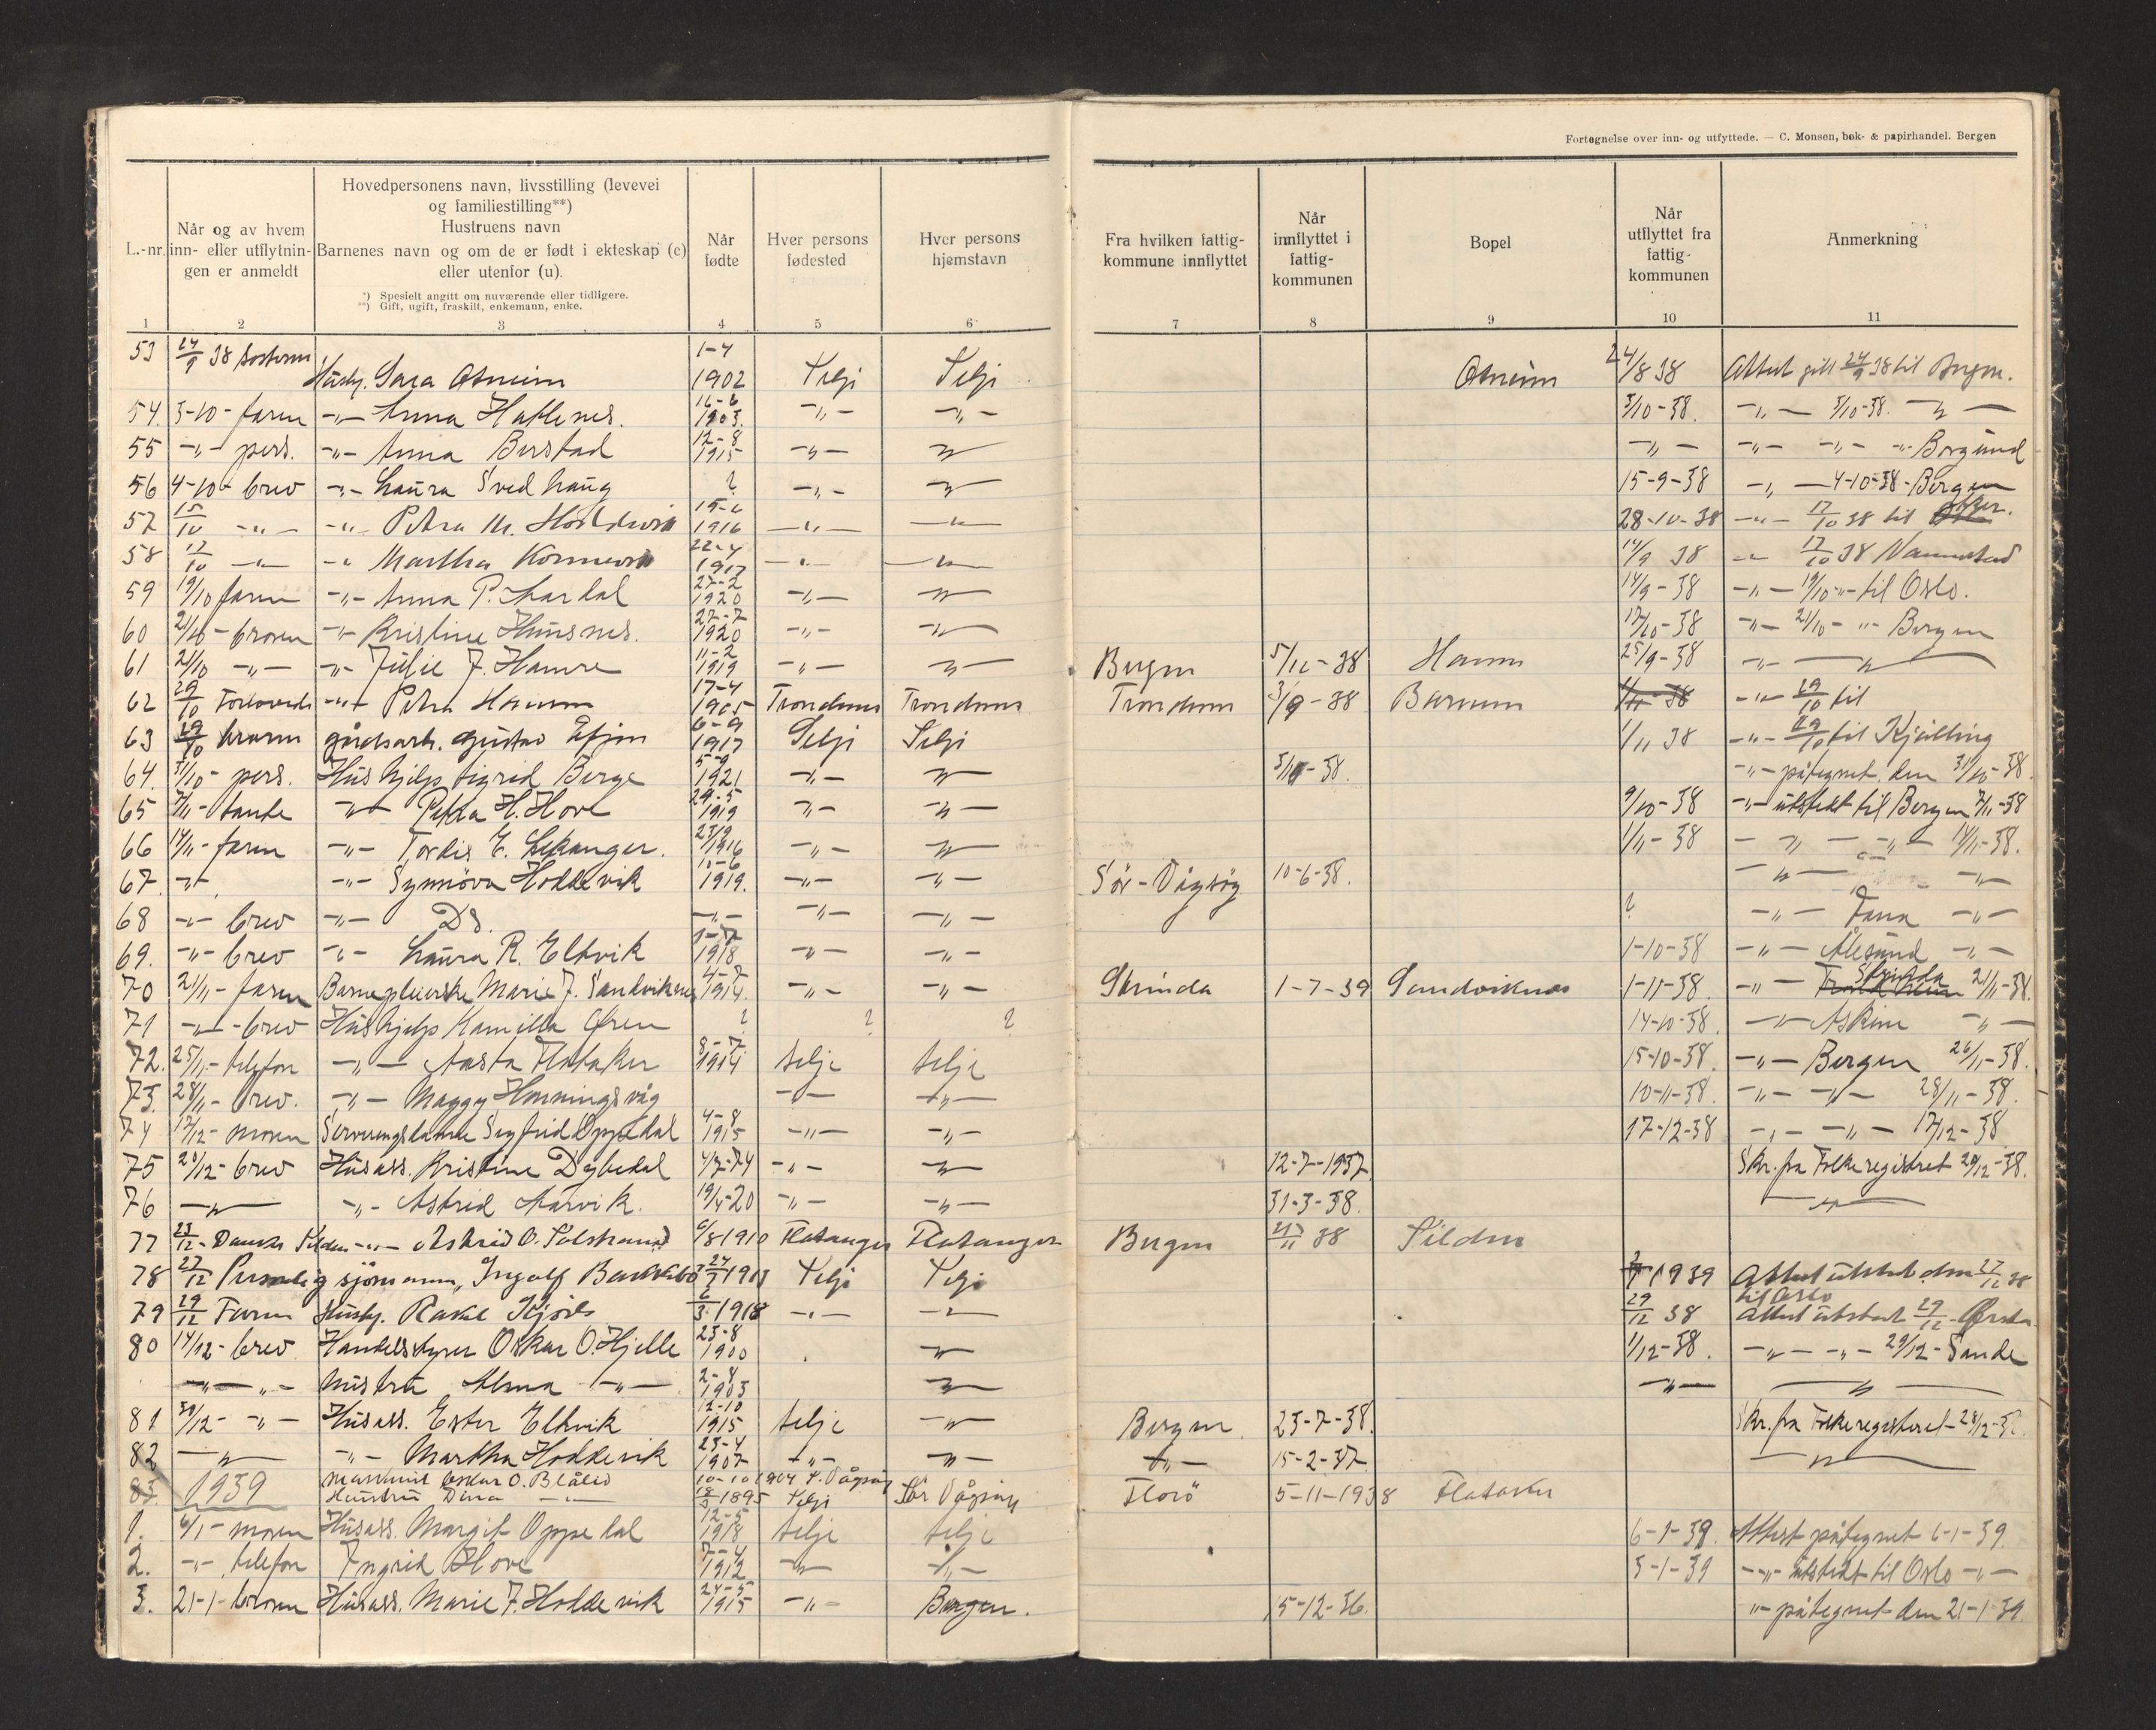 Fortegnelse over inn- og utflyttede. — C. Monsen, bok- & papirhandel. Bergen
L.-nr. | Når og av hvem inn- eller utflytningen er anmeldt | Hovedpersonens navn, livsstilling (levevei og familiestilling**) Hustruens navn Barnenes navn og om de er født i ekteskap (e) eller utenfor (u). | Når fødte | Hver persons fødested | Hver persons hjemstavn | Fra hvilken fattigkommune innflyttet | Når innflyttet i fattigkommunen | Bopel | Når utflyttet fra fattigkommunen | Anmerkning
*) Spesielt angitt om nuværende eller tidligere.
**) Gift, ugift, fraskilt, enkemann, enke.
1 2 3 4 5 6 7 8 9 10 11
53 24/9 38 Hushj. Sara 1-4 1902 Selje Selje 24/8 38 Attest 24/9 38 til Bergen.
54. 3-10- faren -"- Anna Hatlenes. 16-6 1903. -"- -"- 3/10-38. -"- 3/10-38. -"-
55 -"- pers. -"- Anna Berstad 12-8 1915 -"- -"- -"- -"- -"- -"- Borgund
56 4-10- brev -"- Laura Svedhaug ? -"- -"- 15-9-38 -"- 4-10-38- Bergen
57 15/10 -"- -"- Petra M. 15-6 1916 -"- -"- 28-10-38 -"- 17/10 38 til
58 17/10 -"- -"- Martha 22-4 1917 -"- -"- 14/9 38 -"- 17/10 38
59 19/10 faren -"- Anna P. 27-2 1920 -"- -"- 14/9-38 -"- 19/10 -"- til Oslo.
60 21/10- broren -"- Kristine Husnes. 27-7 1920 -"- -"- 17/10-38 -"- 21/10- -"- Bergen
61 21/10 -"- -"- Julie J. Hamre 11-2 1919 -"- -"- Bergen 38 25/9-38 -"- -"-
62 29/10 -"- Petra 17-4 1905 Trondenes Trondenes Trondenes 3/9-38 38 -"- 29/10 til
63 29/10 gårdsarb. Gustav 6-9 1917 Selje Selje 1/11 38 -"- 29/10 til
64. 31/10- pers. Hushjelp Sigrid Berge 5-9 1921 -"- -"- 38. -"- påtegnet den 31/10-38.
65 7/11- tante -"- Petra H. Hove 24-5 1919 -"- -"- 9/10-38 -"- utstedt til Bergen 7/11-38
66 14/11- faren -"- Tordis E. Leikanger. 23/9 1916 -"- -"- 1/11-38 -"- -"- 14/11-38.
67. -"- -"- Synnöva Hoddevik 10-6 1919. -"- -"- Sör-Vågsøy 10-6-38. -"- -"-
68 -"- brev -"- Ds. -"- -"- -"- ? -"- Fana -"-
69. -"- brev -"- Laura R. Eltvik 1918 -"- -"- 1-10-38 -"- Ålesund -"-
70 21/11- faren Barnepleierske Marie J. Sandviknes 4-7 1914. -"- -"- Strinda 1-7-39 Sandviknes 1-11-38. -"- Strinda 21/11-38.
71 -"- brev Hushjelp Kamilla ? ? ? 14-10-38. -"- Askim -"-
72. 25/11- telefon -"- Aasta Flataker 8-7 1914 Selje Selje 15-10-38. -"- Bergen 26/11-38.
73. 28/11- brev. -"- Maggy Honningsvåg -"- -"- 10-11-38. -"- -"- 28/11-38.
74 17/12- moren Serveringsdame Sigfrid Oppedal 4-8 1915 -"- -"- 17-12-38 -"- -"- 17/12-38
75 20/12- brev Husass. Kristine Dybedal 4/7-74 -"- -"- 12-7-1937. Skr. fra Folkeregistret 20/12-38.
76 -"- -"- Astrid Aarvik. 19/4-20 -"- -"- 31-3-38. -"-
77 23/12- -"- Astrid O. 6/8 1910 Flatanger Flatanger Bergen 38 Silden
78 27/12 Personlig sjömann, Ingolf 1913 Selje Selje 1939 Attest utstedt den 27/12 38 til Oslo
79 29/12 Faren Hushj. Rakel 1918 -"- -"- 29/12 38 Attest utstedt 29/12 Ørsta
80 14/12- brev Handelsstyrer Oskar O. Hjelle 23-8 1900 -"- 1/12-38. -"- -"- 29/12- Sande
-"- -"- Hustru Alma -"- 2-8 1903 -"- -"- -"-
81 30/12- -"- Husass. Ester Eltvik 12-10 1915 Selje -"- Bergen. 23-7-38. Skr. fra Folkeregisteret-
82 -"- -"- Martha Hoddevik 23-4 1907 -"- -"- -"- 15-2-37. -"-
83. Maskinist Oskar O. Blålid 10-10 1904 S. Vågsøy
1939 Hustru Dina -"- 1895 Selje Sør Vågsøy Florö 5-11-1938 Flataker
1. 6/1- moren Husass. Margit Oppedal 12-5 1918 Selje Selje 6-1-39. Attest påtegnet 6-1-39.
2. -"- telefon Ingrid Hove 7-4 1912 -"- -"- 3-1-39 -"- utstedt til Oslo -"-
3. 21-1- broren Husass. Marie J. Hoddevik 24-5 1915 -"- Bergen. 5-12-36. -"- påtegnet den 21-1-39.